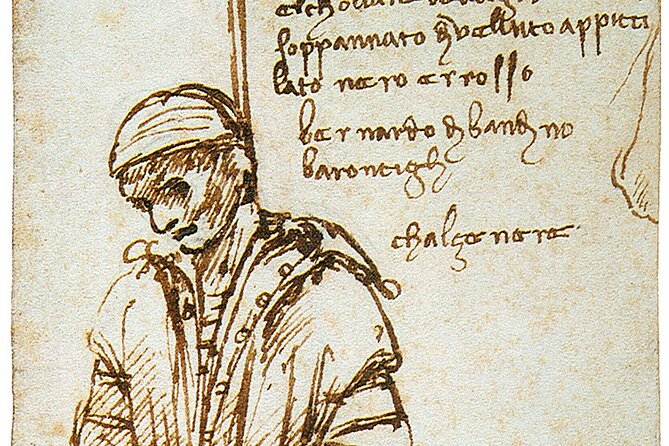 elchollare
soppannato di velluto appicci
lato nero e rosso
bernardo di bandino
baroncigli
chalze nere